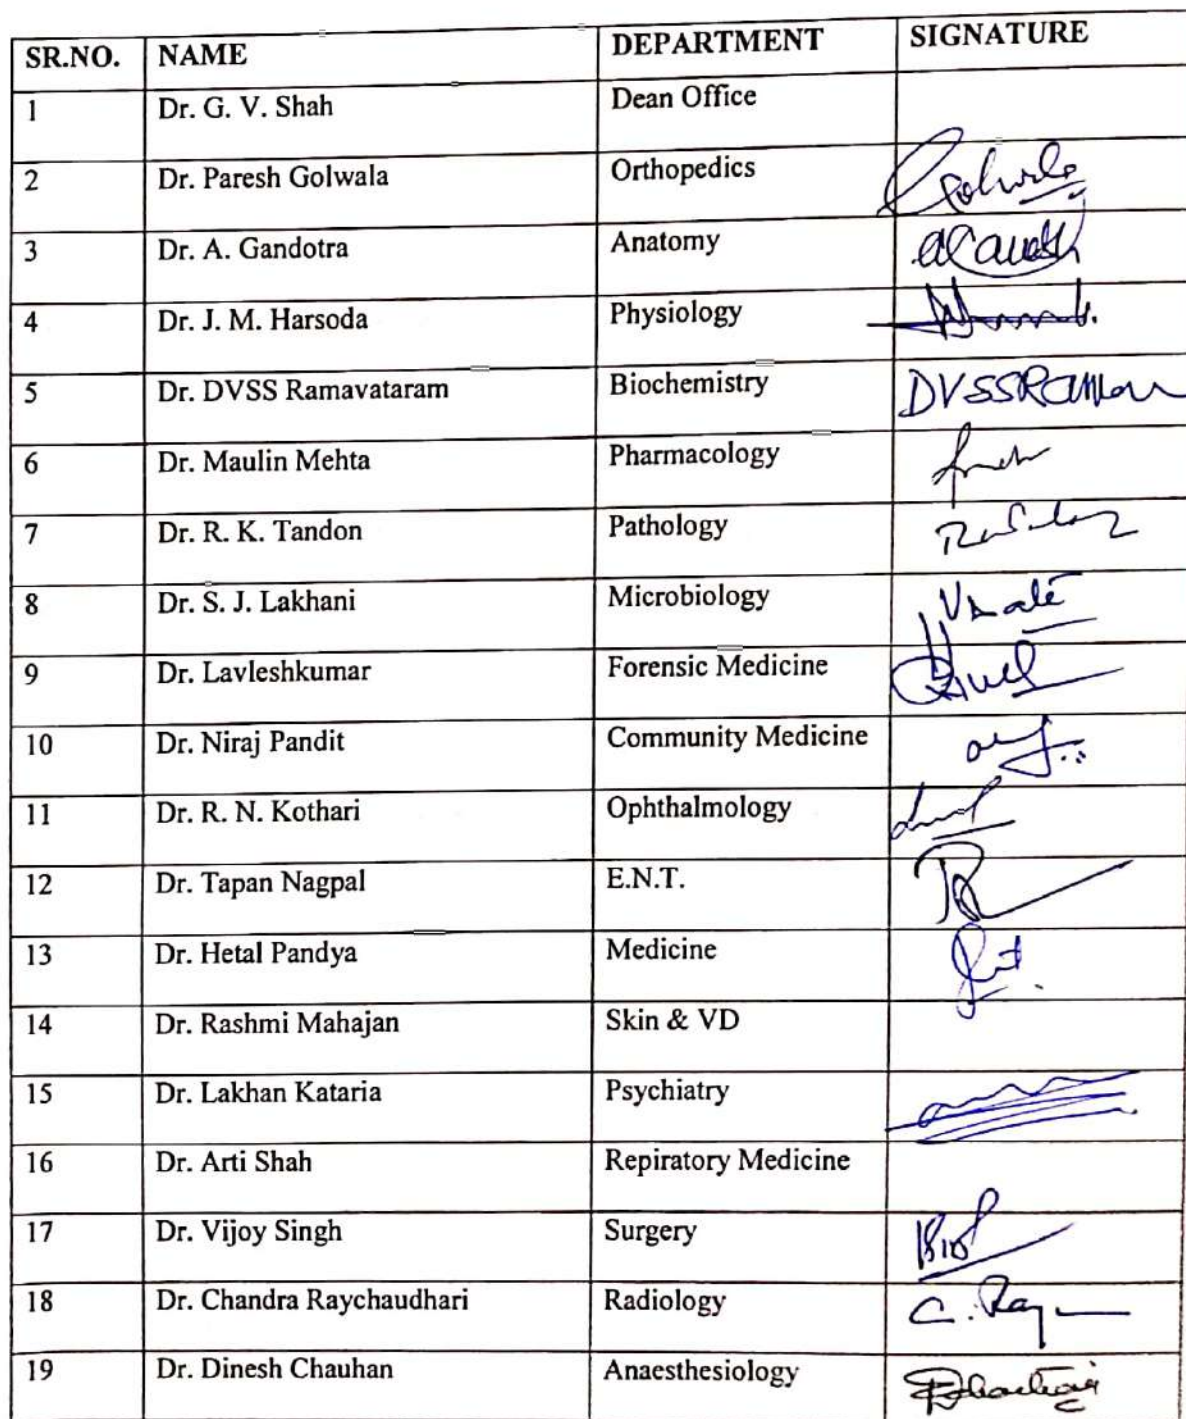 SR.NO. NAME DEPARTMENT SIGNATURE
1 Dr. G. V. Shah Dean Office
2 Dr. Paresh Golwala Orthopedics
3 Dr. A. Gandotra Anatomy
4 Dr. J. M. Harsoda Physiology
5 Dr. DVSS Ramavataram Biochemistry
6 Dr. Maulin Mehta Pharmacology
7 Dr. R. K. Tandon Pathology
8 Dr. S. J. Lakhani Microbiology
9 Dr. Lavleshkumar Forensic Medicine
10 Dr. Niraj Pandit Community Medicine
11 Dr. R. N. Kothari Ophthalmology
12 Dr. Tapan Nagpal E.N.T.
13 Dr. Hetal Pandya Medicine
14 Dr. Rashmi Mahajan Skin & VD
15 Dr. Lakhan Kataria Psychiatry
16 Dr. Arti Shah Repiratory Medicine
17 Dr. Vijoy Singh Surgery
18 Dr. Chandra Raychaudhari Radiology
19 Dr. Dinesh Chauhan Anaesthesiology